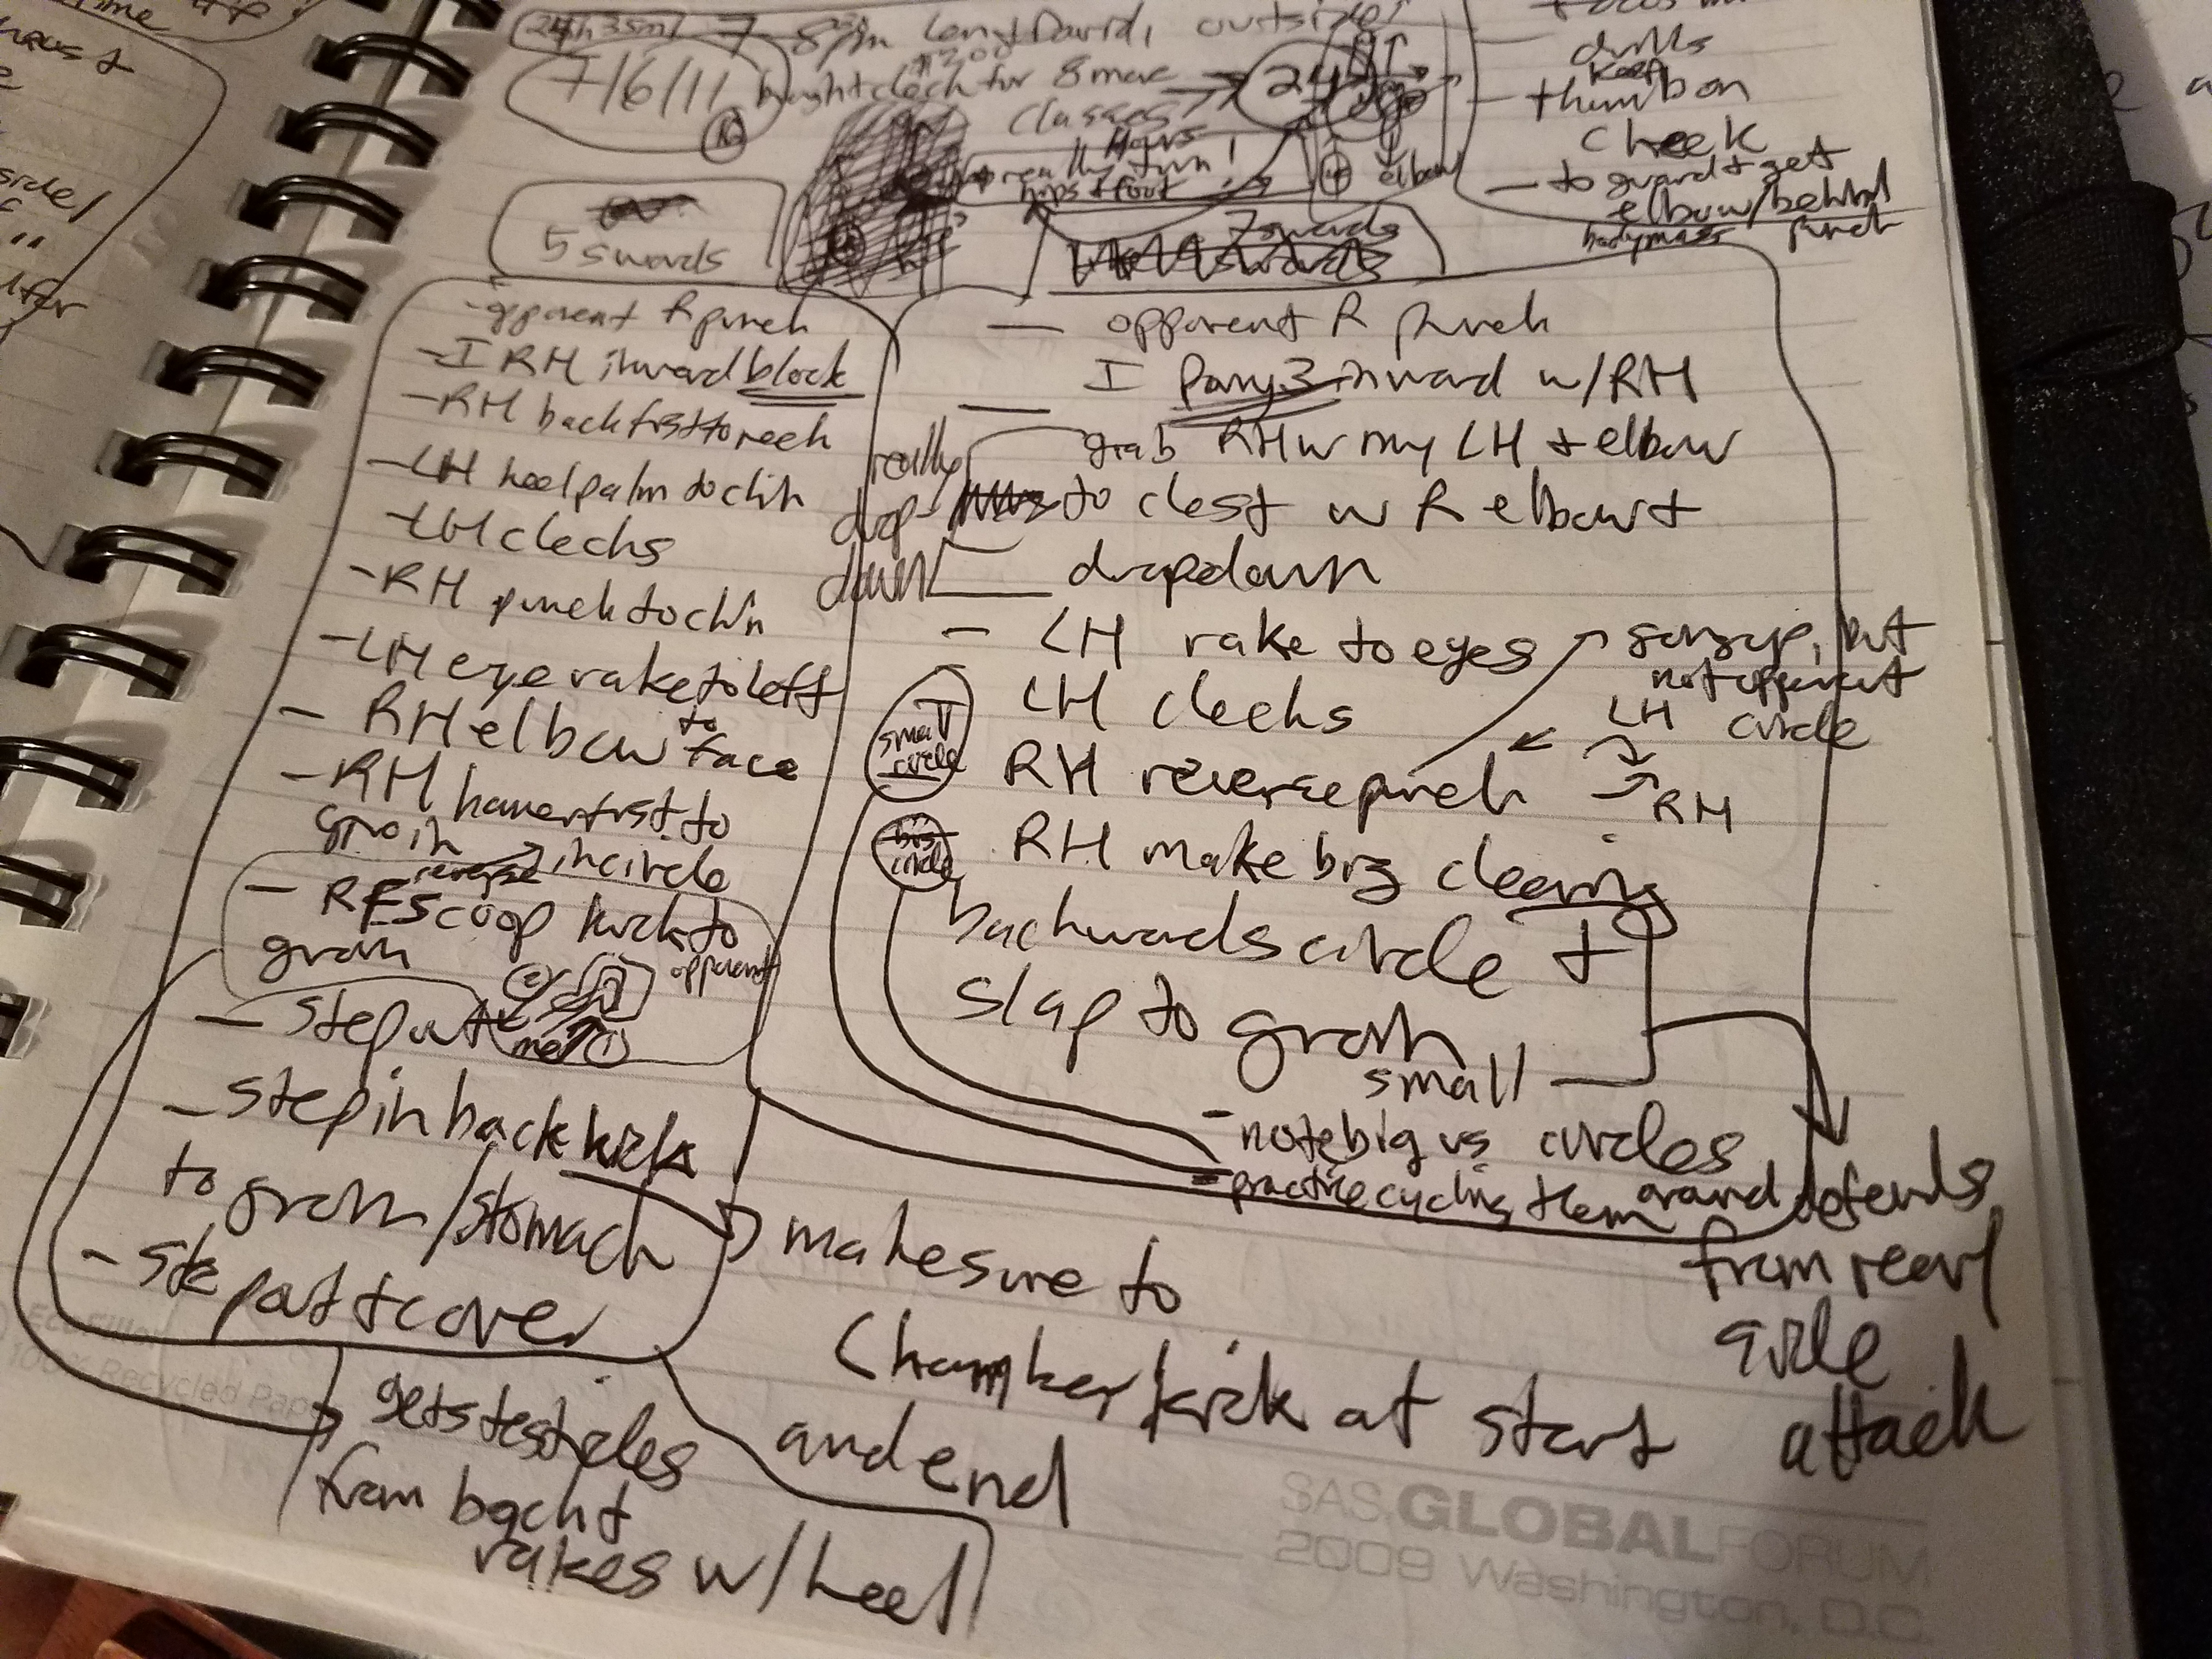 24h 35m 7-8pm Len + David, outside!
$200
7/6/11 bought check for 8 more
classes
16
Hours
really turn!
hips + foot
24
elbow
drills
keep
- thumb on
cheek
- to guard + get
elbow w/behind
body mass punch
5 swords
7 swords
- opponent R punch
- I RH inward block
- RH back fist to neck
- LH heel palm to chin
- LH checks
- RH punch to chin
- LH eye rake to left
- RH elbow to face
- RH hammer fist to
groin
in circle
reverse
- RF scoop kick to
groin
opponent
me
- step out
- step in back kick
to groin/stomach
- step out + cover
gets testicles
from back +
rakes w/heel
make sure to
chamber kick at start
and end
- opponent R punch
I Parry inward w/RH
grab RH w my LH + elbow
to chest w R elbow +
drop down
really
drop
down
- LH rake to eyes
LH checks
RH reverse punch
small
circle
big
circle
RH make big clearing
backwards circle +
slap to groin
LH
RH
not opponent
circle
small
- note big vs circles
- practice cycling them
around defends
from rear
attack
SAS GLOBALFORUM
2009 Washington, D.C.
100% Recycled Pap